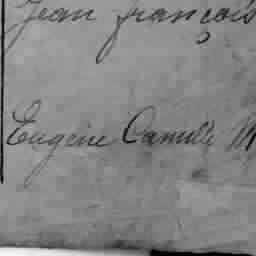 Jean françois
Eugène Camille